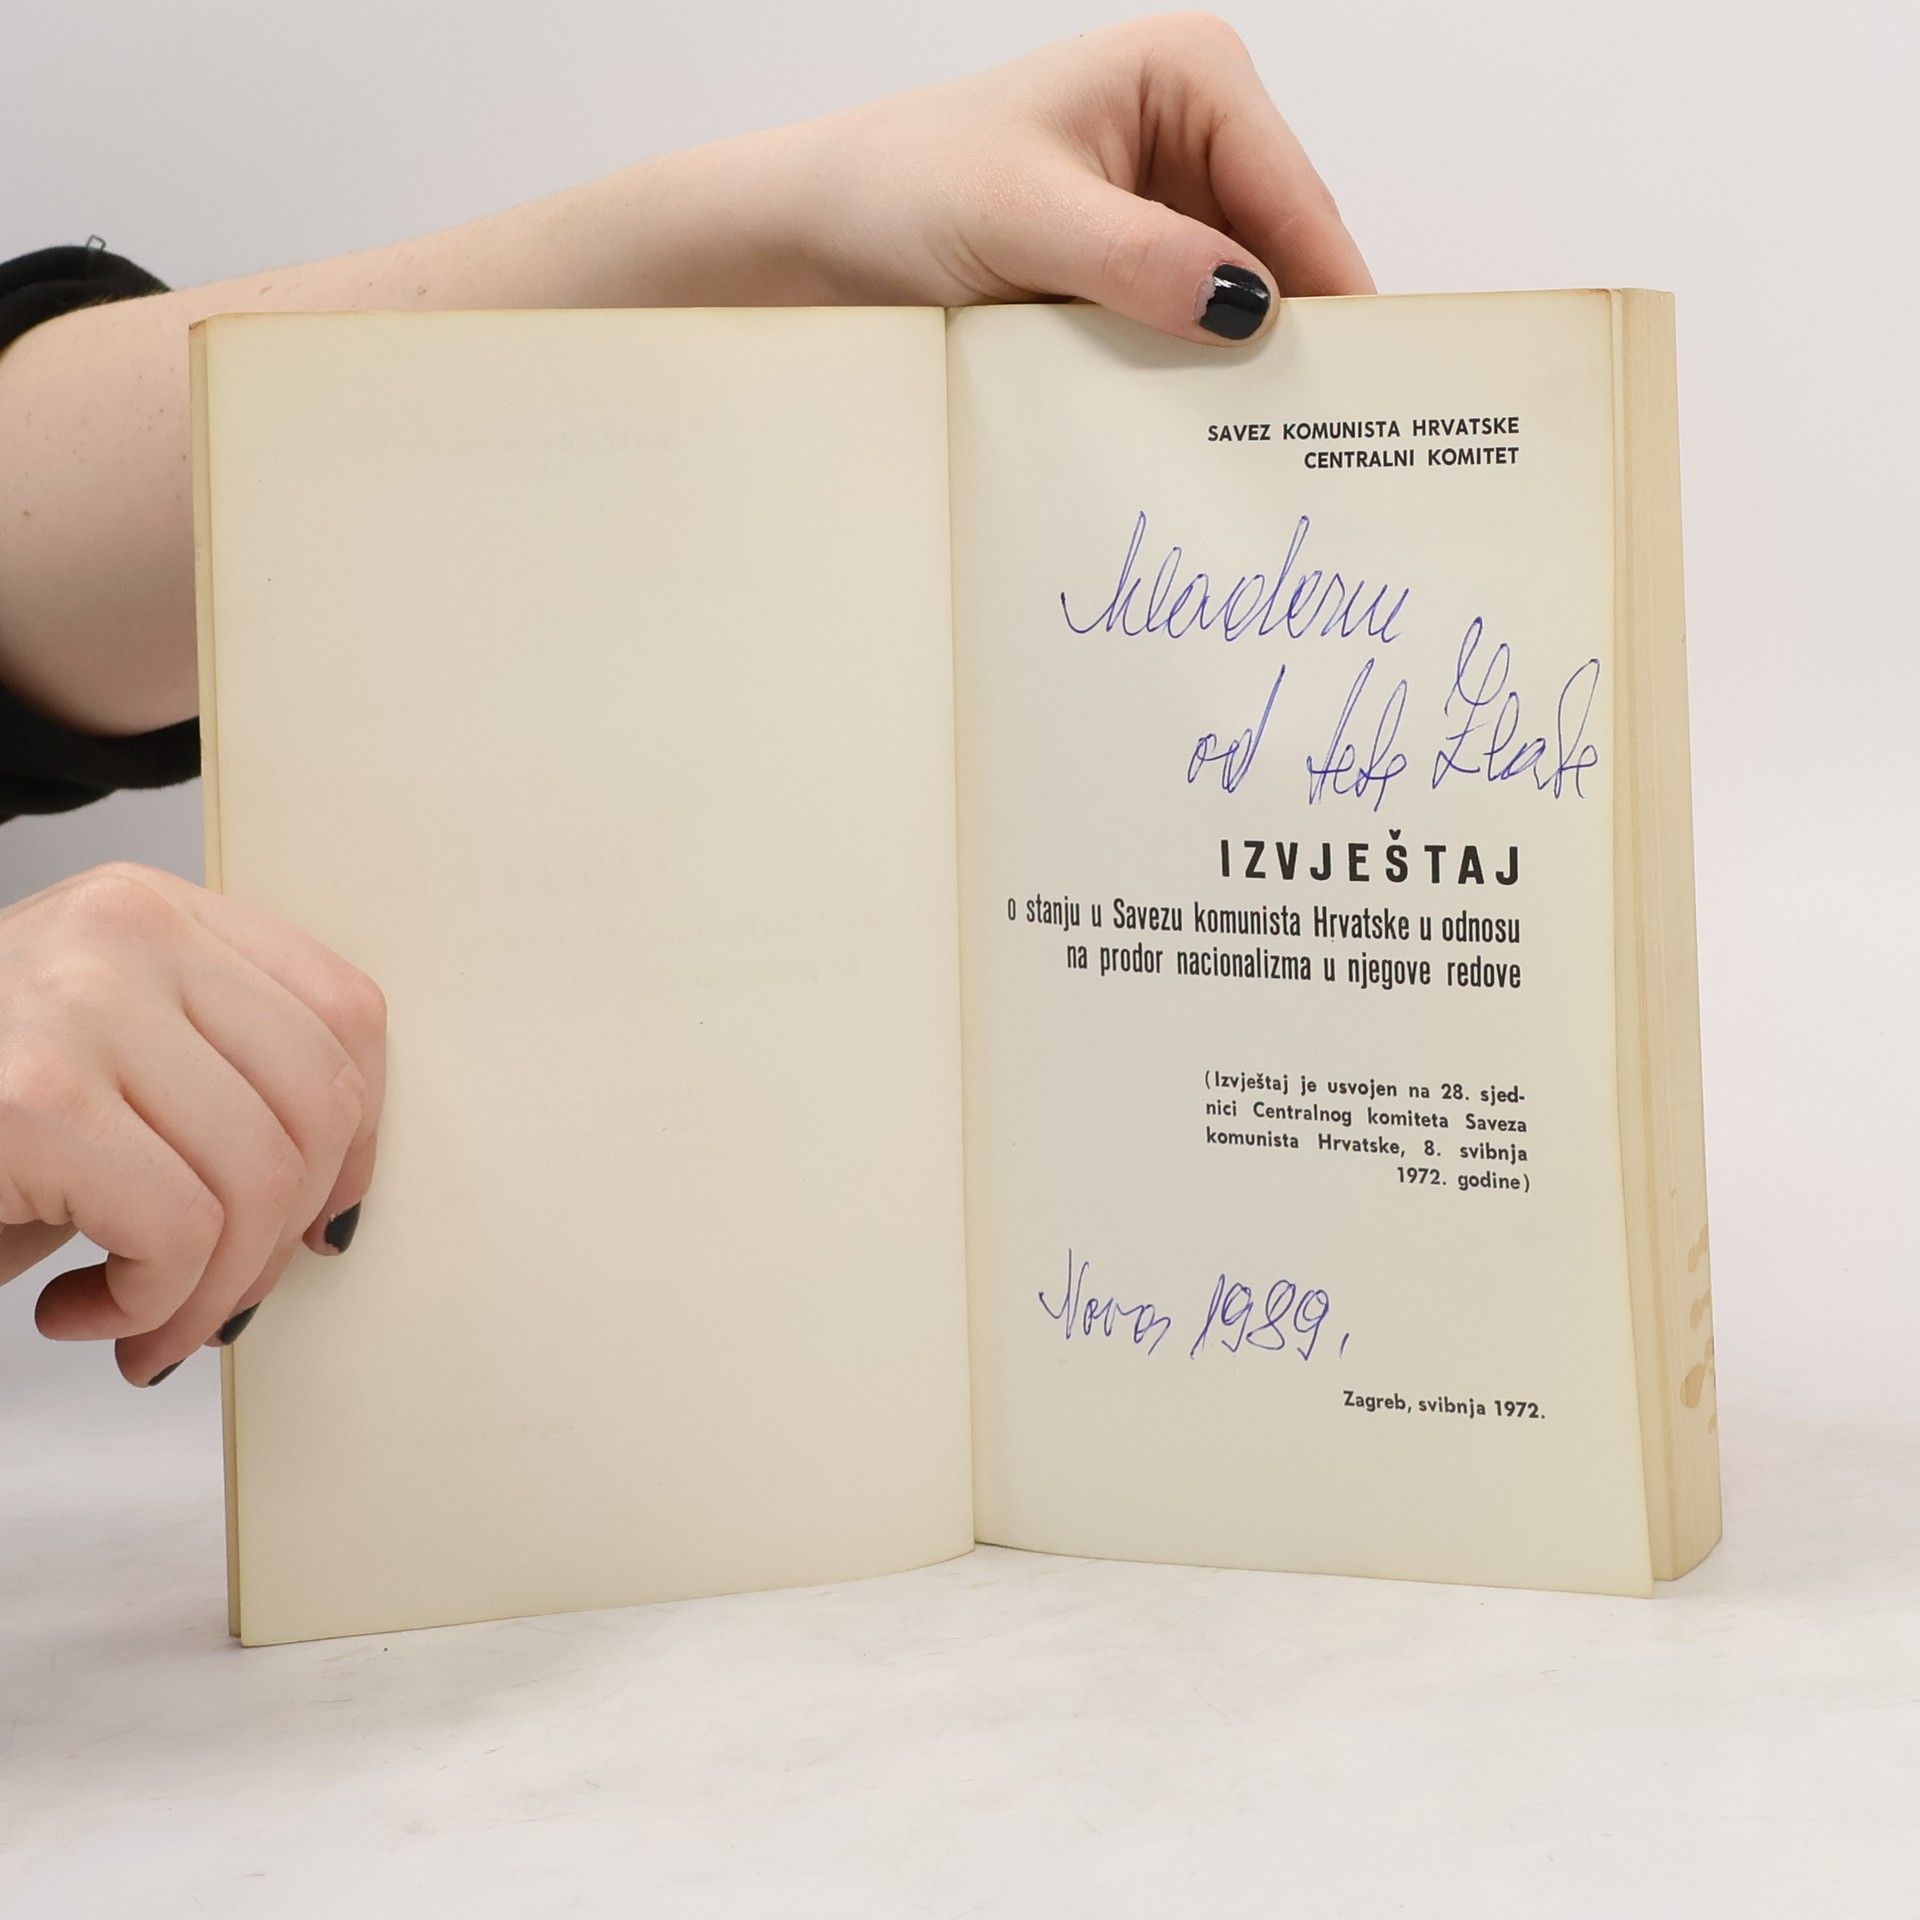 SAVEZ KOMUNISTA HRVATSKE
CENTRALNI KOMITET
Mladenu
od tete Zlate
IZVJEŠTAJ
o stanju u Savezu komunista Hrvatske u odnosu
na prodor nacionalizma u njegove redove
(Izvještaj je usvojen na 28. sjed-
nici Centralnog komiteta Saveza
komunista Hrvatske, 8. svibnja
1972. godine)
1989.
Zagreb, svibnja 1972.